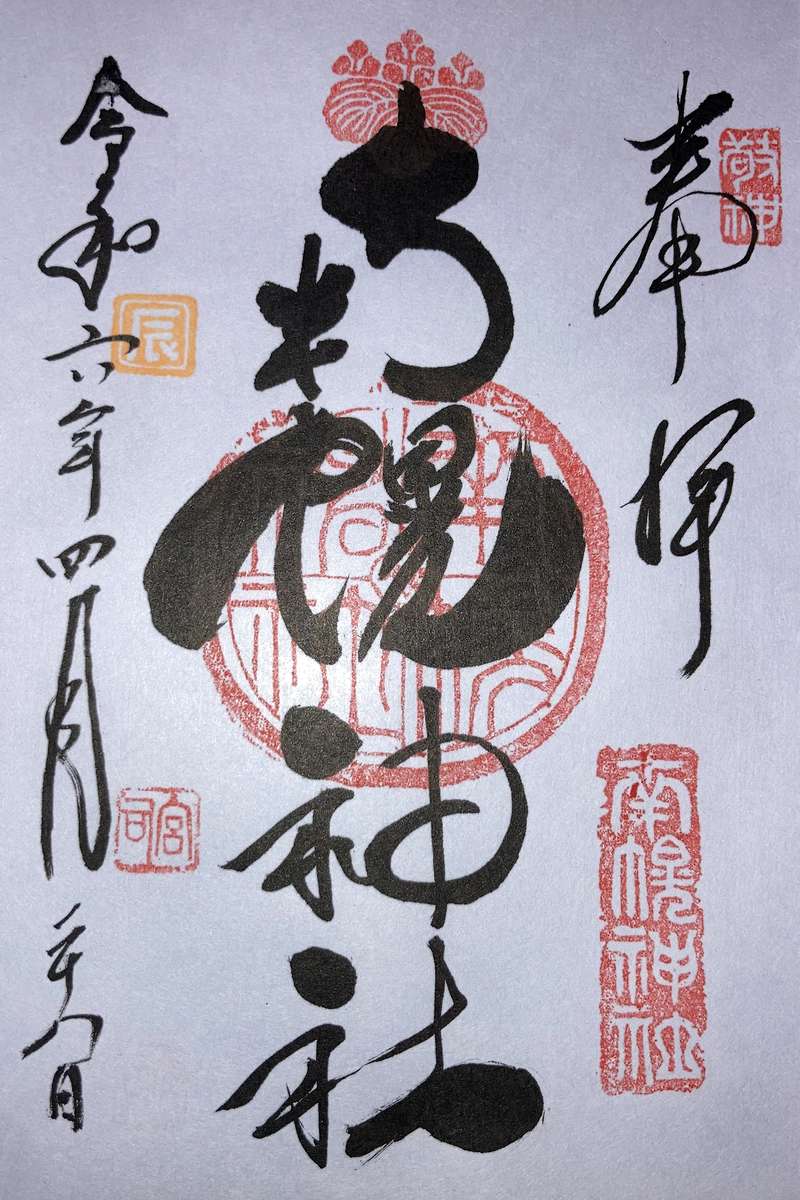 敬神
奉拝
南幌神社
南幌神社
令和六年四月二十八日
辰
宮司